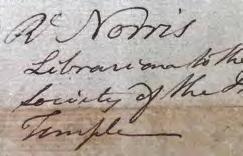 Rd Norris
Librarian to the
Society of the
Temple